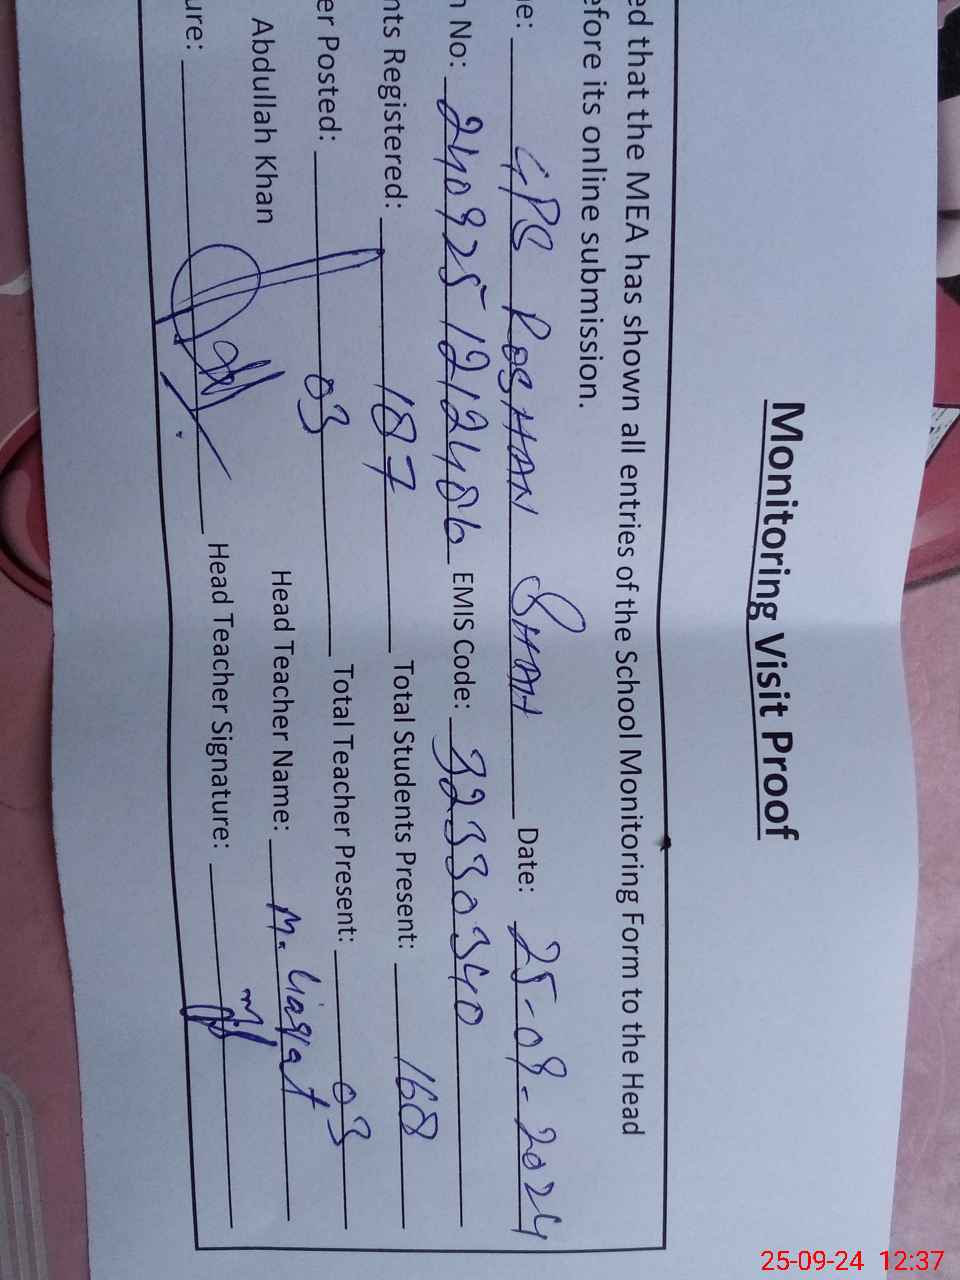 Monitoring Visit Proof
ed that the MEA has shown all entries of the School Monitoring Form to the Head
efore its online submission.
e: GPS ROSHAN SHAH Date: 25-09-2024
n No: 2409251212486 EMIS Code: 32330340
nts Registered: 187 Total Students Present: 168
er Posted: 03 Total Teacher Present: 03
Abdullah Khan Head Teacher Name: M. Liaqat
ure: Head Teacher Signature:
25-09-24 12:37